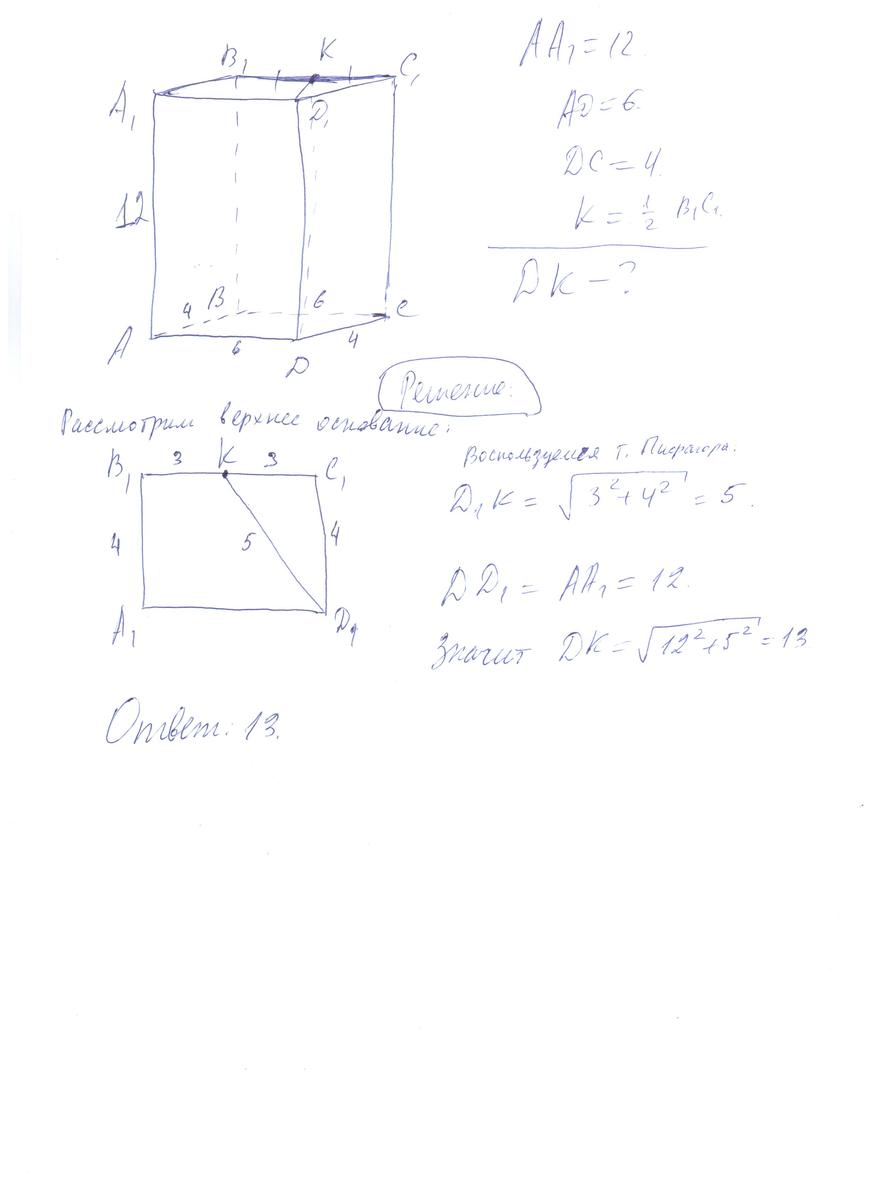 B₁ K C₁
A₁ D₁
12
4 B 6 C
A 6 D 4
AA₁ = 12.
AD = 6.
DC = 4.
K = 1/2 B₁C₁.
DK - ?
Решение:
Рассмотрим верхнее основание:
B₁ 3 K 3 C₁
4 5 4
A₁ D₁
Воспользуемся т. Пифагора.
D₁K = √(3² + 4²) = 5.
DD₁ = AA₁ = 12.
Значит DK = √(12² + 5²) = 13
Ответ: 13.